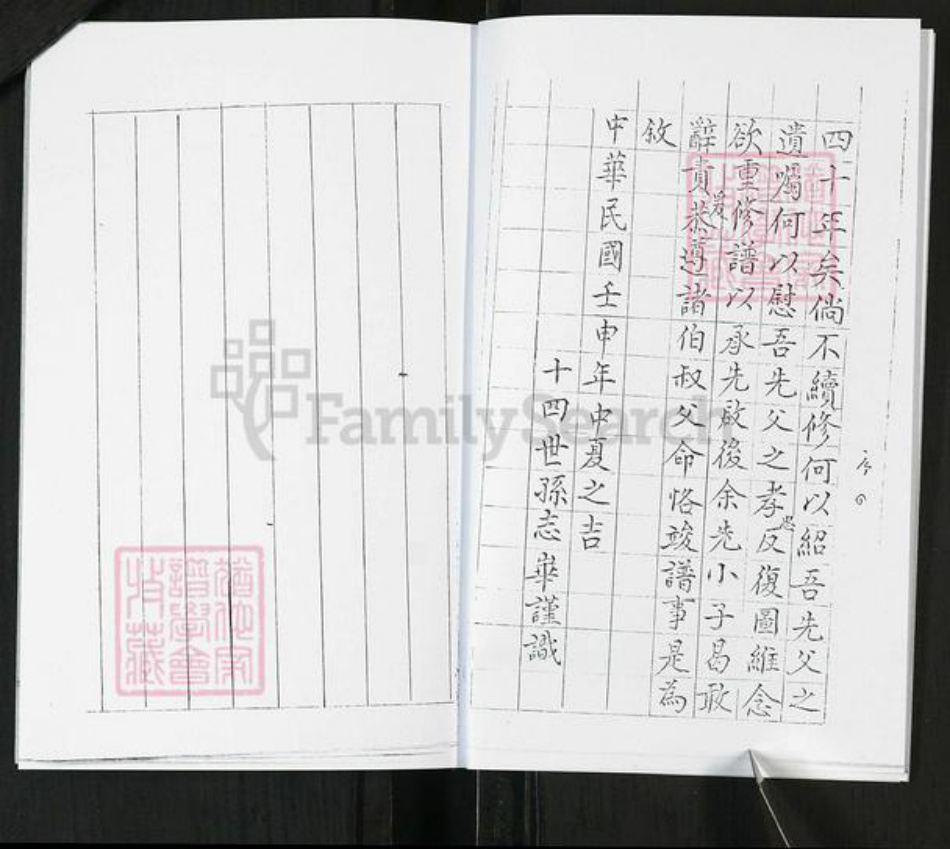 序
四十年矣倘不續修何以紹吾先父之
遺囑何以慰吾先父之孝思反復圖維念
欲重修譜以承先啟後余先小子曷敢
辭責爰恭遵諸伯叔父命恪竣譜事是為
敘
中華民國壬申年中夏之吉
十四世孫志崋謹識
猶他家
譜學會
收藏
FamilySearch